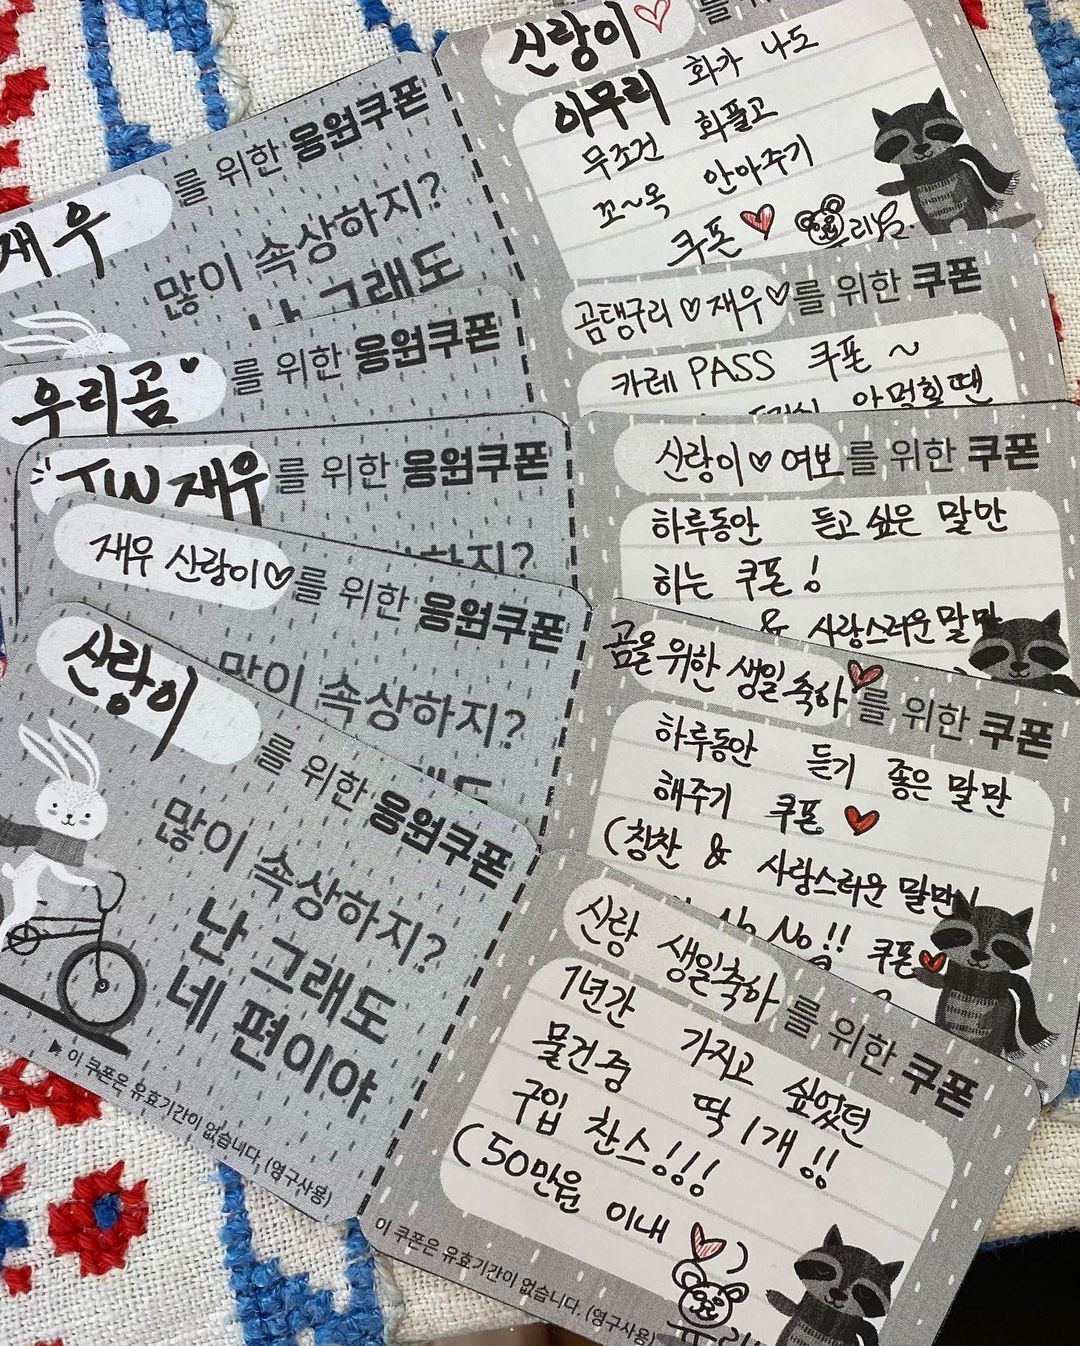 재우를 위한 응원쿠폰
많이 속상하지?
난 그래도
신랑이♡를 위한
아무리 화가 나도
무조건 화풀고
꼬~옥 안아주기
쿠폰♥
우리곰♥를 위한 응원쿠폰
곰탱구리♡재우♡를 위한 쿠폰
카레 PASS 쿠폰~
JW 재우를 위한 응원쿠폰
신랑이♡여보를 위한 쿠폰
하루동안 듣고싶은 말만
하는 쿠폰!
& 사랑스러운말만
재우 신랑이♡를 위한 응원쿠폰
많이 속상하지?
곰을위한 생일축하♥를 위한 쿠폰
하루동안 듣기 좋은 말만
해주기 쿠폰♥
(칭찬 & 사랑스러운 말만
No No!! 쿠폰♥
신랑이를 위한 응원쿠폰
많이 속상하지?
난 그래도
네 편이야
▶ 이 쿠폰은 유효기간이 없습니다. (영구사용)
신랑 생일축하를 위한 쿠폰
1년간 가지고 싶었던
물건중 딱 1개!!
구입 찬스!!!
(50만원 이내♥)
이 쿠폰은 유효기간이 없습니다. (영구사용)